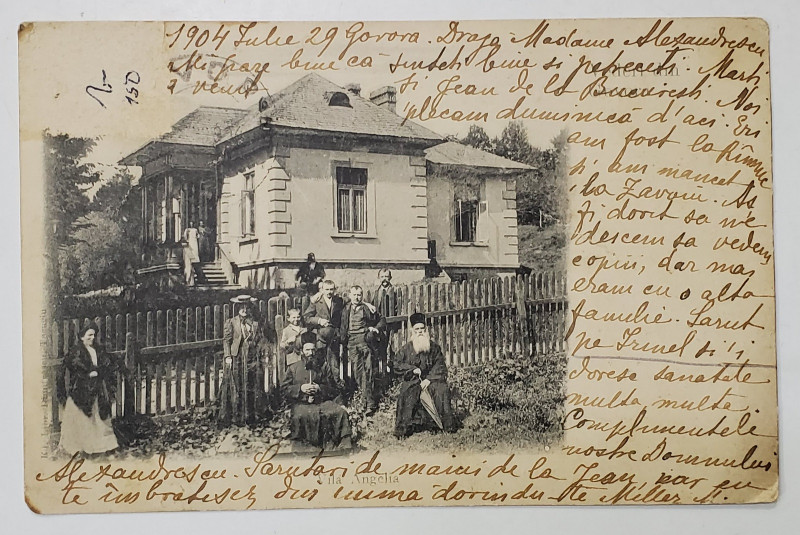 1904 Iulie 29 Govora. Draga Madame Alexandrescu
Mi pare bine că sinteti bine si petreceti. Marti
a venit si Jean de la Bucuresti. Noi
plecam duminică d'aci. Eri
am fost la Rîmnic
si am mancat
la Zavoiu. As
fi dorit sa ne
descem sa vedem
copiii, dar mai
eram cu o alta
familie. Sarut
pe Irinel si'i
doresc sanatate
multa multa.
Complimentele
nostre Domnului
Alexandrescu. Sarutari de maini de la Jean, iar eu
te îmbrătisez din inima dorindu-te
Vila Angelia
150